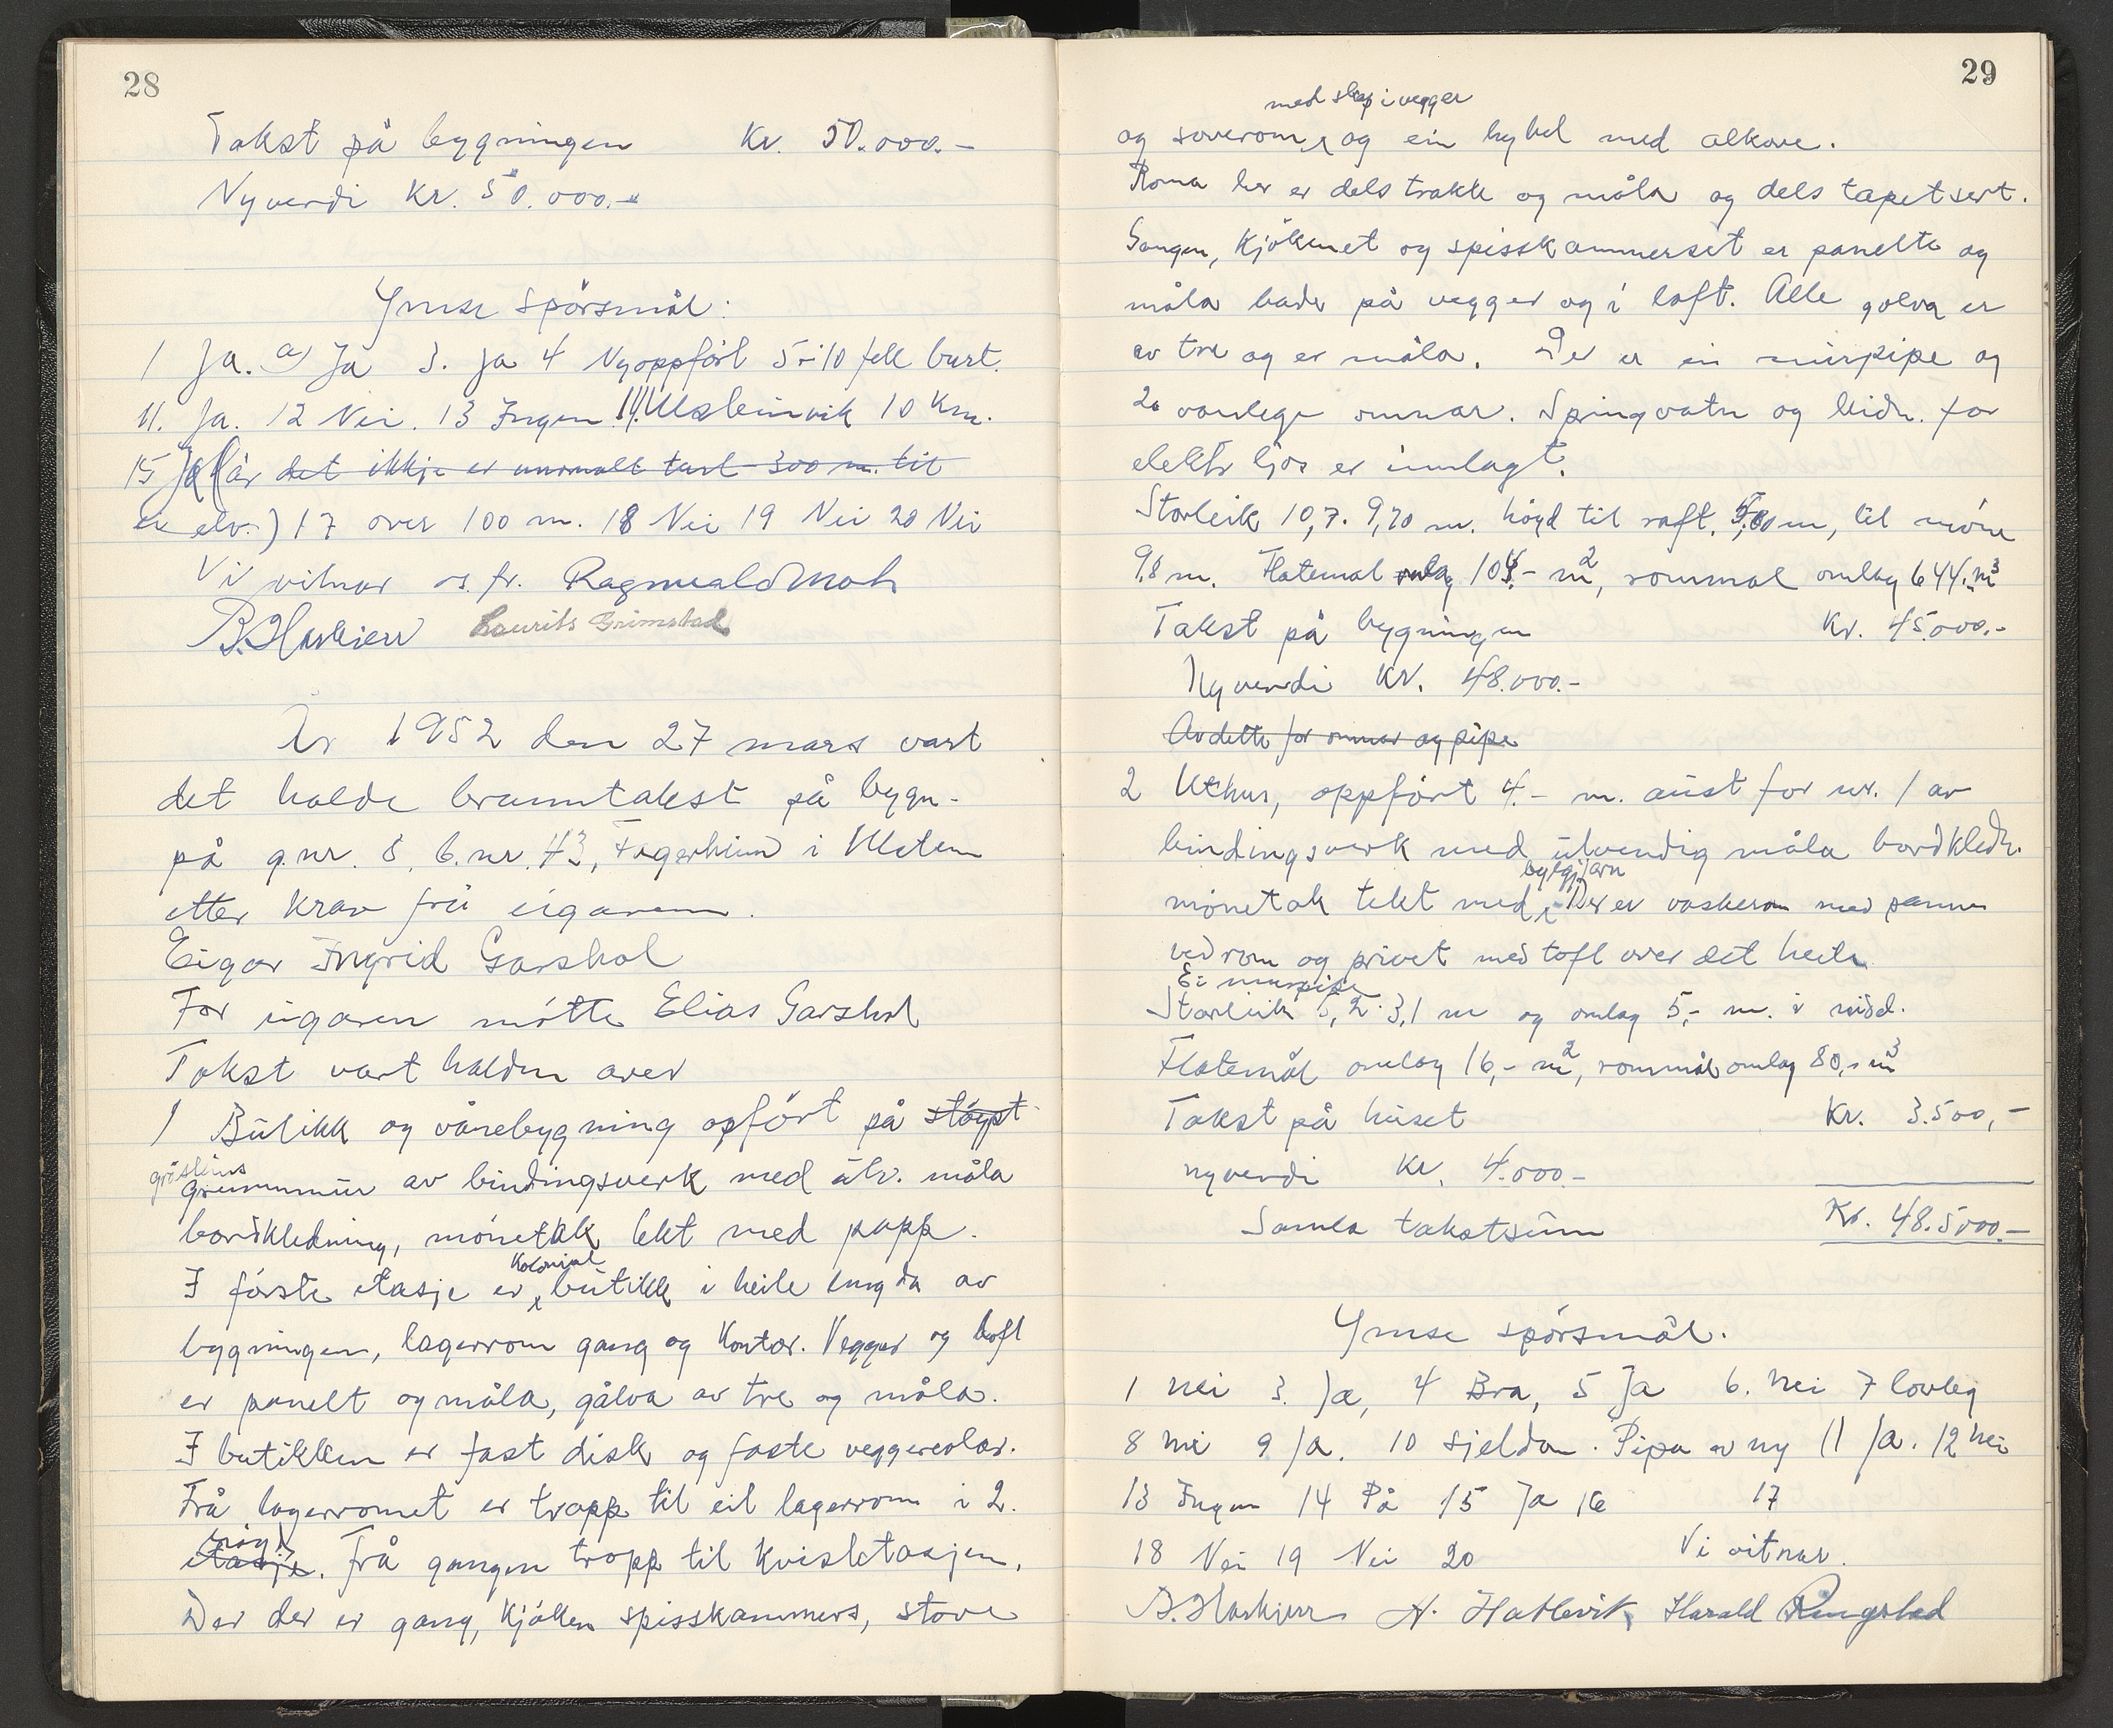 28
Takst på bygningen Kr. 50.000.-
Nyverdi Kr. 50.000.-
Ymse spörsmål:
1 Ja. a) Ja 3. Ja 4 Nyoppfört 5-10 fell burt.
11. Ja. 12 Nei. 13 Ingen 14. Ulsteinvik 10 km.
15 Ja (når det ikkje er unormalt turt 300 m. til
ei elv.) 17 over 100 m. 18 Nei 19 Nei 20 Nei
Vi vitnar Ragnvald Moh
B. Haskjerr Laurits Grimstad
År 1952 den 27 mars vart
det halde branntakst på bygn.
på g.nr. 8, b.nr. 43, Fagerheim i Ulstein
etter krav frå eigaren.
Eigar Ingrid Garshol
For eigaren møtte Elias Garshol
Takst vart halden over
1 Butikk og vånebygning opfört på stöypt
gråsteins
grunnmur av bindingsverk med utv. måla
bordkledning, mönetak tekt med papp.
Kolonial
I förste etasje er butikk i heile lengda av
bygningen, lagerrom gang og Kontor. Vegger og loft
er panelt og måla, gålva av tre og måla.
I butikken er fast disk og faste veggreolar.
Frå lagerromet er tropp til eit lagerrom i 2.
högd
etasje. Frå gangen tropp til kvistetasjen.
Der der er gang, kjöken spisskammers, stove
29
med skap i vegger
og soverom, og ein hybel med alkove.
Roma her er dels trakke og måla og dels tapetsert.
Gangen, kjökenet og spisskammerset er panelte og
måla bade på vegger og i loft. Alle golva er
av tre og er måla. Der er ei murpipe og
2 vanlege omnar. Springvatn og leidn. for
elektr ljos er innlagt.
Storleik 10,7. 9,70 m. högd til raft. 5,80 m, til möne
9,8 m. Flatemål omlag 104.- m², rommål omlag 644.- m³
Takst på bygningen Kr. 45.000.-
Nyverdi Kr. 48.000.-
Av dette for omnar og pipe
2 Uthus, oppfört 4.- m. aust for nr. 1 av
bindingsverk med utvendig måla bordkledn.
bylgjjarn
mönetak tekt med, Der er vaskerom med panne
vedrom og privet med loft over det heile.
Ei murpipe
Storleik 5,2. 3,1 m og omlag 5,- m. i midd.
Flatemål omlag 16,- m², rommål omlag 80,- m³
Takst på huset Kr. 3.500,-
nyverdi Kr. 4.000.-
Samla takstsum Kr. 48.5000.-
Ymse spörsmål.
1 Nei 3. Ja, 4 Bra, 5 Ja 6. Nei 7 lovleg
8 Nei 9 Ja. 10 sjeldan. Pipa er ny 11 Ja. 12 Nei
13 Ingen 14 På 15 Ja 16 17
18 Nei 19 Nei 20 Vi vitnar.
B. Haskjerr A. Hatlevik, Harald Ringstad